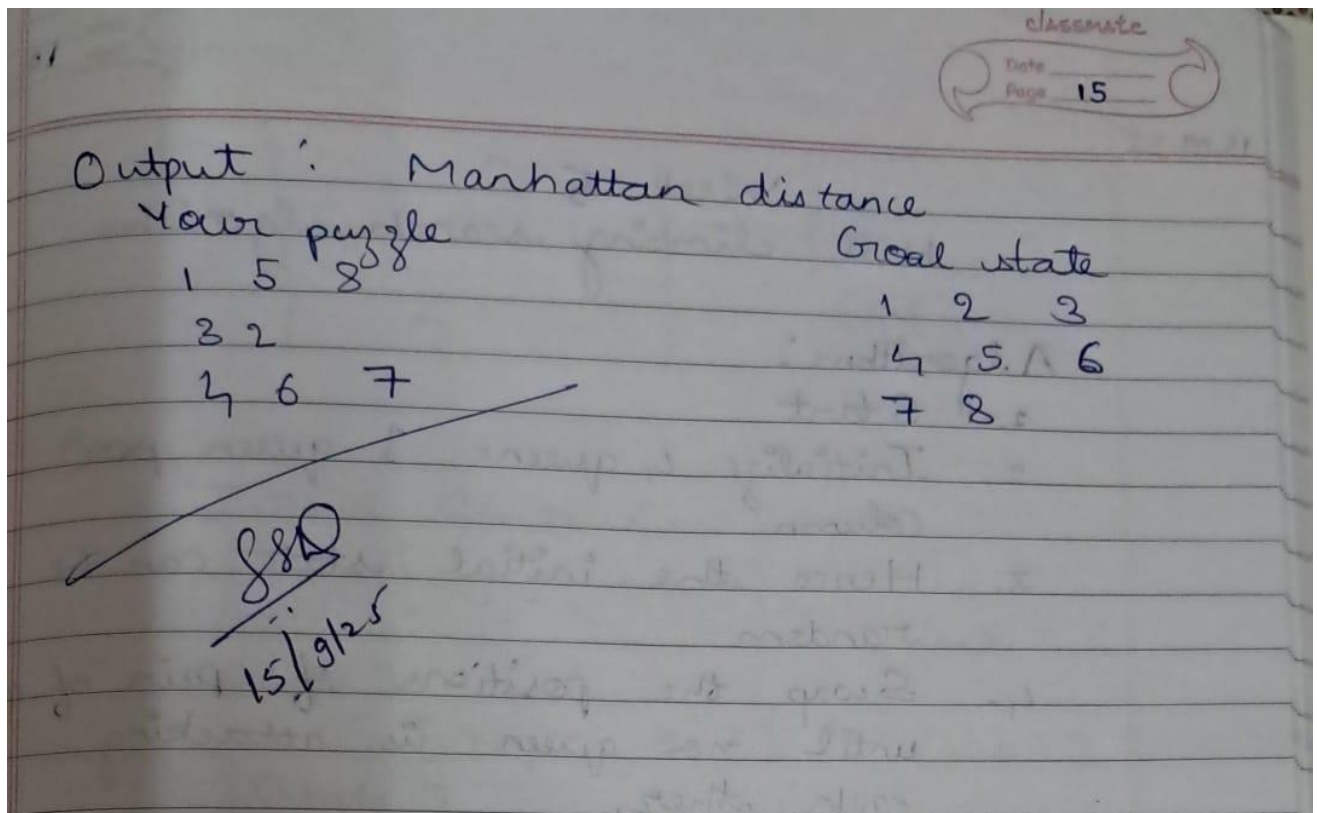 classmate
Date
Page 15
Output : Manhattan distance
Your puzzle
Goal state
1 5 8
1 2 3
3 2
4 5 6
4 6 7
7 8
15/9/25